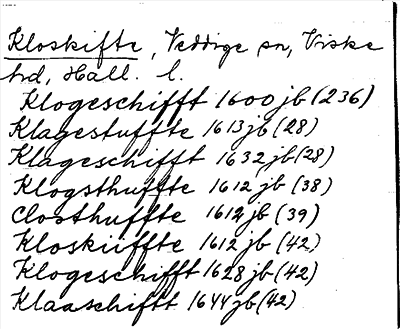 Kloskifte, Veddige sn, Viske
hd, Hall. l.
Klogeschifft 1600 jb (236)
Klagestuffte 1613 jb (28)
Klageschifft 1632 jb (28)
Klogsthuffte 1612 jb (38)
Closthuffte 1612 jb (39)
Kloskiiffte 1612 jb (42)
Klogeschifft 1628 jb (42)
Klaaschifft 1644 jb (42)